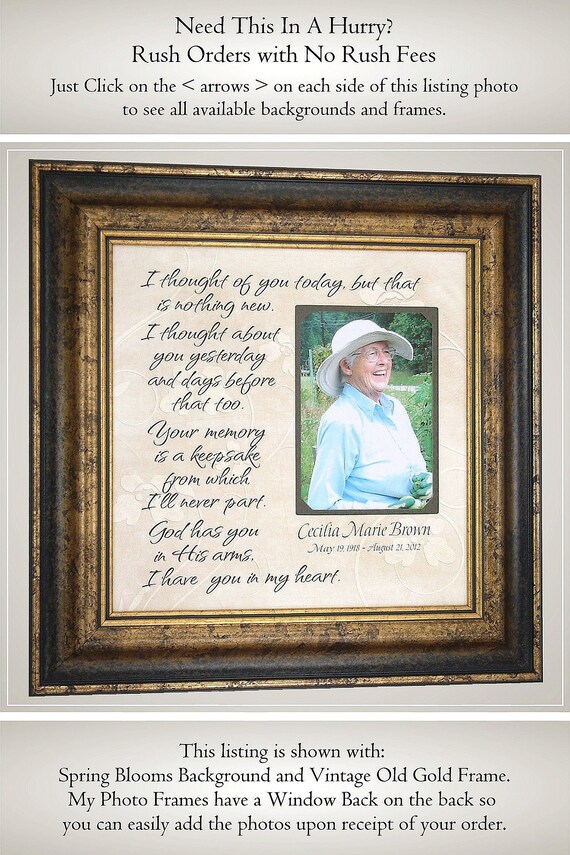 Need This In A Hurry?
Rush Orders with No Rush Fees
Just Click on the < arrows > on each side of this listing photo
to see all available backgrounds and frames.
I thought of you today, but that
is nothing new.
I thought about
you yesterday
and days before
that too.
Your memory
is a keepsake
from which
I'll never part.
God has you
in His arms,
I have you in my heart.
Cecilia Marie Brown
May 19, 1918 - August 21, 2012
This listing is shown with:
Spring Blooms Background and Vintage Old Gold Frame.
My Photo Frames have a Window Back on the back so
you can easily add the photos upon receipt of your order.